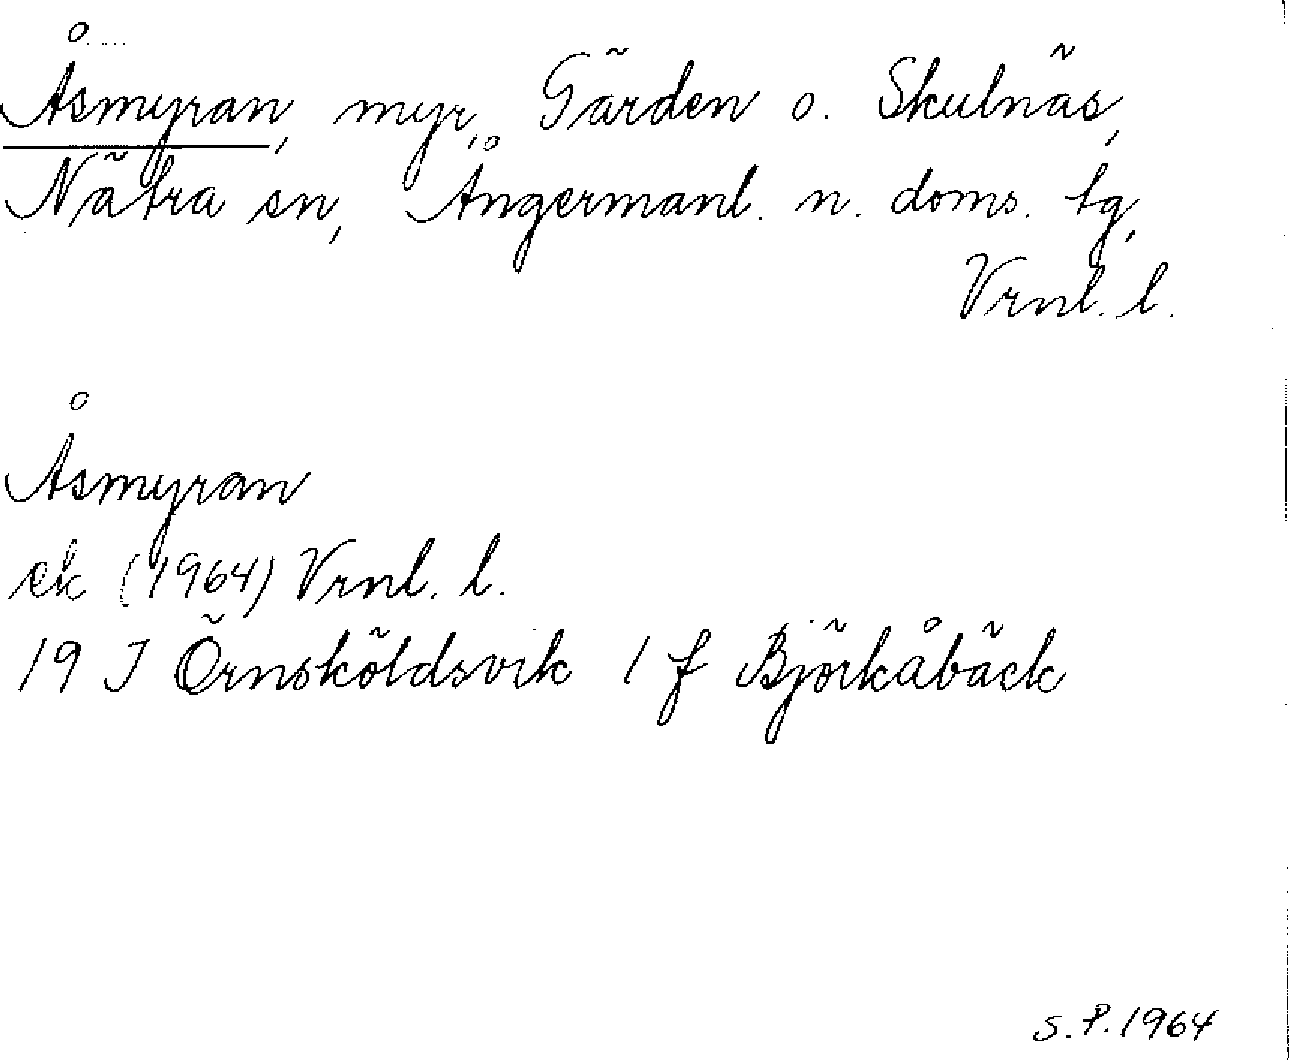 Åsmyran, myr, Gärden o. Skulnäs,
Nätra sn, Ångermanl. n. doms. tg,
Vrnl. l.
Åsmyran
ek (1964) Vrnl. l.
19 J Örnsköldsvik 1 f Björkåbäck
S.P. 1964